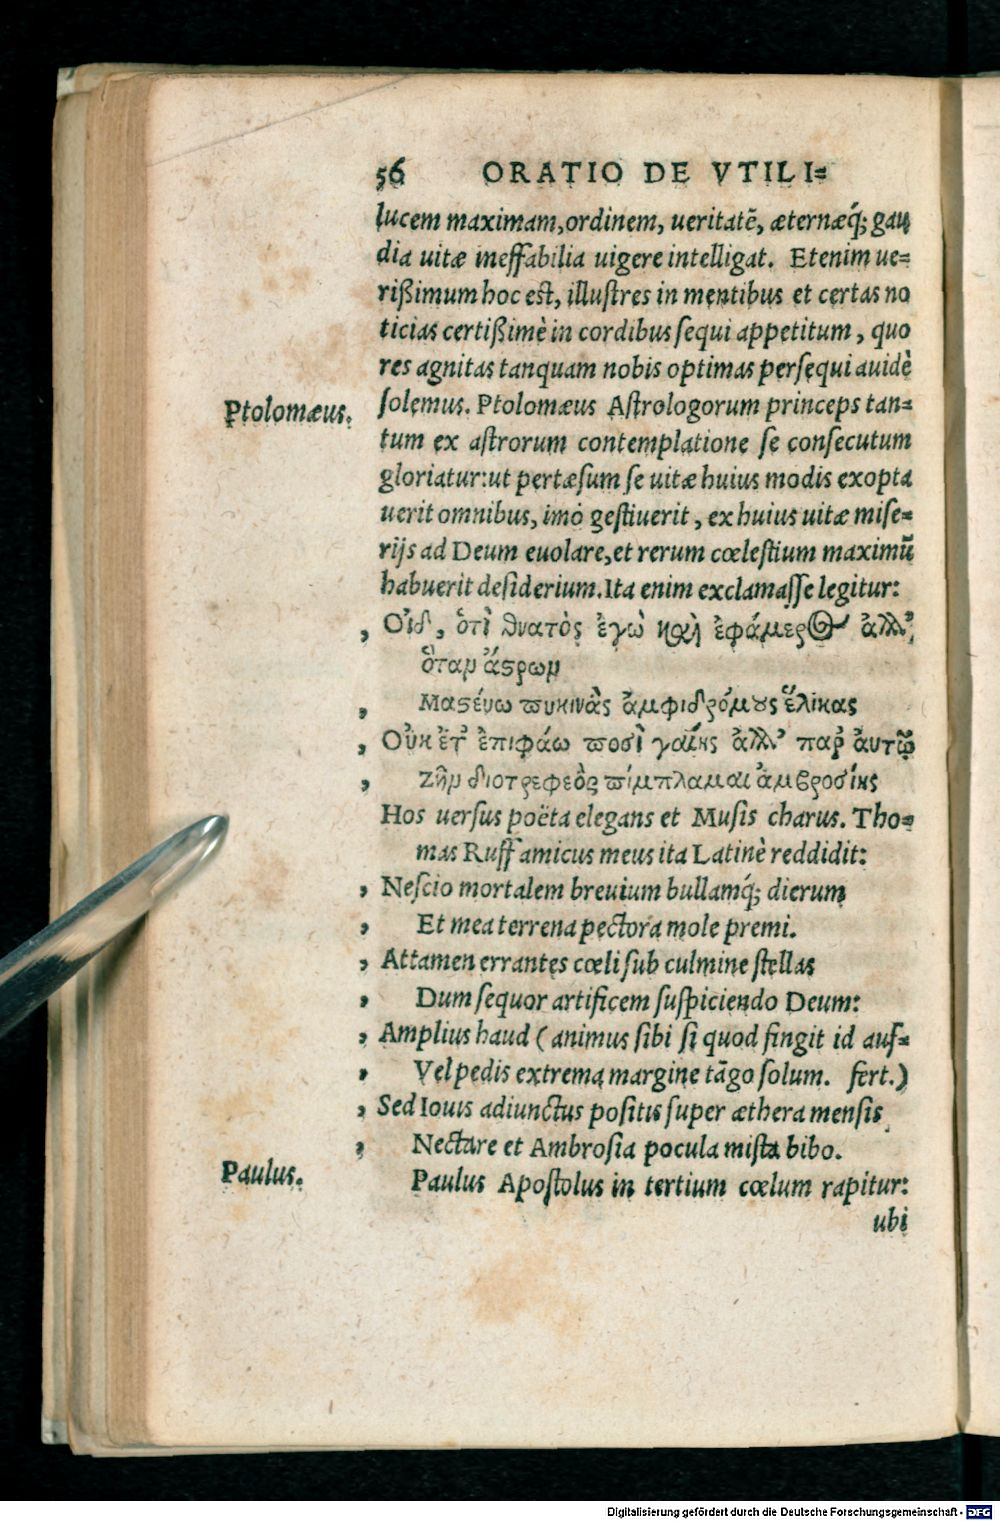 56 ORATIO DE VTILI=
lucem maximam, ordinem, ueritatē, æternæq́; gau
dia uitæ ineffabilia uigere intelligat. Etenim ue=
rißimum hoc est, illustres in mentibus et certas no
ticias certißimè in cordibus sequi appetitum, quo
res agnitas tanquam nobis optimas persequi auidè
Ptolomæus. solemus. Ptolomæus Astrologorum princeps tan=
tum ex astrorum contemplatione se consecutum
gloriatur: ut pertæsum se uitæ huius modis exopta
uerit omnibus, imò gestiuerit, ex huius uitæ mise=
rijs ad Deum euolare, et rerum cœlestium maximū
habuerit desiderium. Ita enim exclamasse legitur:
, Οἶδ, ὅτι θνατὸς ἐγὼ καὶ ἐφάμερος ἀλλ’
ὅταν ἄϛρων
, Μαϛεύω πυκινὰς ἀμφιδρόμους ἕλικας
, Οὐκ ἔτ’ ἐπιφάω ποσὶ γαίης ἀλλ’ παρ’ ἀυτῷ
, Ζῆνι διοτρεφεὸς πίμπλαμαι ἀμβροσίης
Hos uersus poëta elegans et Musis charus. Tho=
mas Ruff amicus meus ita Latinè reddidit:
, Nescio mortalem breuium bullamq́; dierum
, Et mea terrena pectora mole premi.
, Attamen errantes cœli sub culmine stellas
, Dum sequor artificem suspiciendo Deum:
, Amplius haud (animus sibi si quod fingit id auf=
, Vel pedis extrema margine tāgo solum. fert.)
, Sed Iouis adiunctus positis super æthera mensis
, Nectare et Ambrosia pocula mista bibo.
Paulus. Paulus Apostolus in tertium cœlum rapitur:
ubi
Digitalisierung gefördert durch die Deutsche Forschungsgemeinschaft - DFG